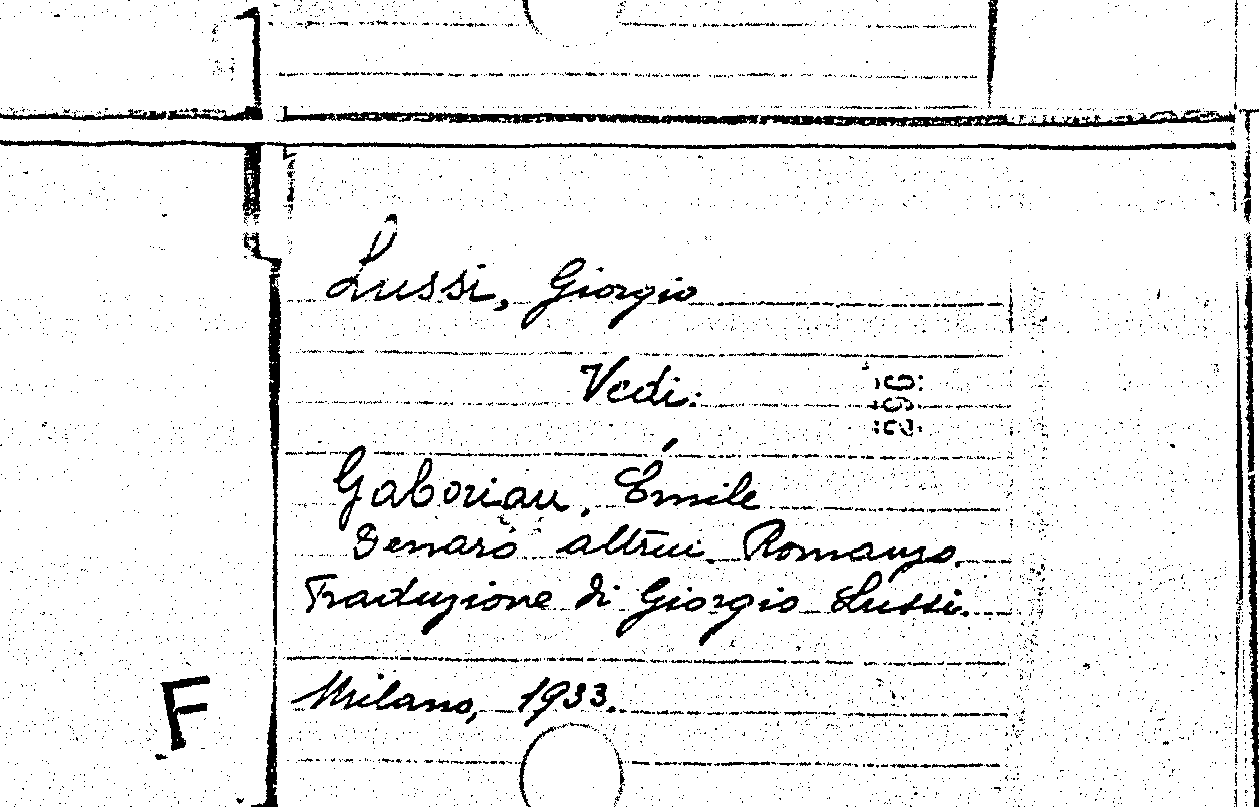 Lussi, Giorgio
Vedi:
Gaboriau, Émile
Denaro altrui. Romanzo.
Traduzione di Giorgio Lussi.
Milano, 1933.
F